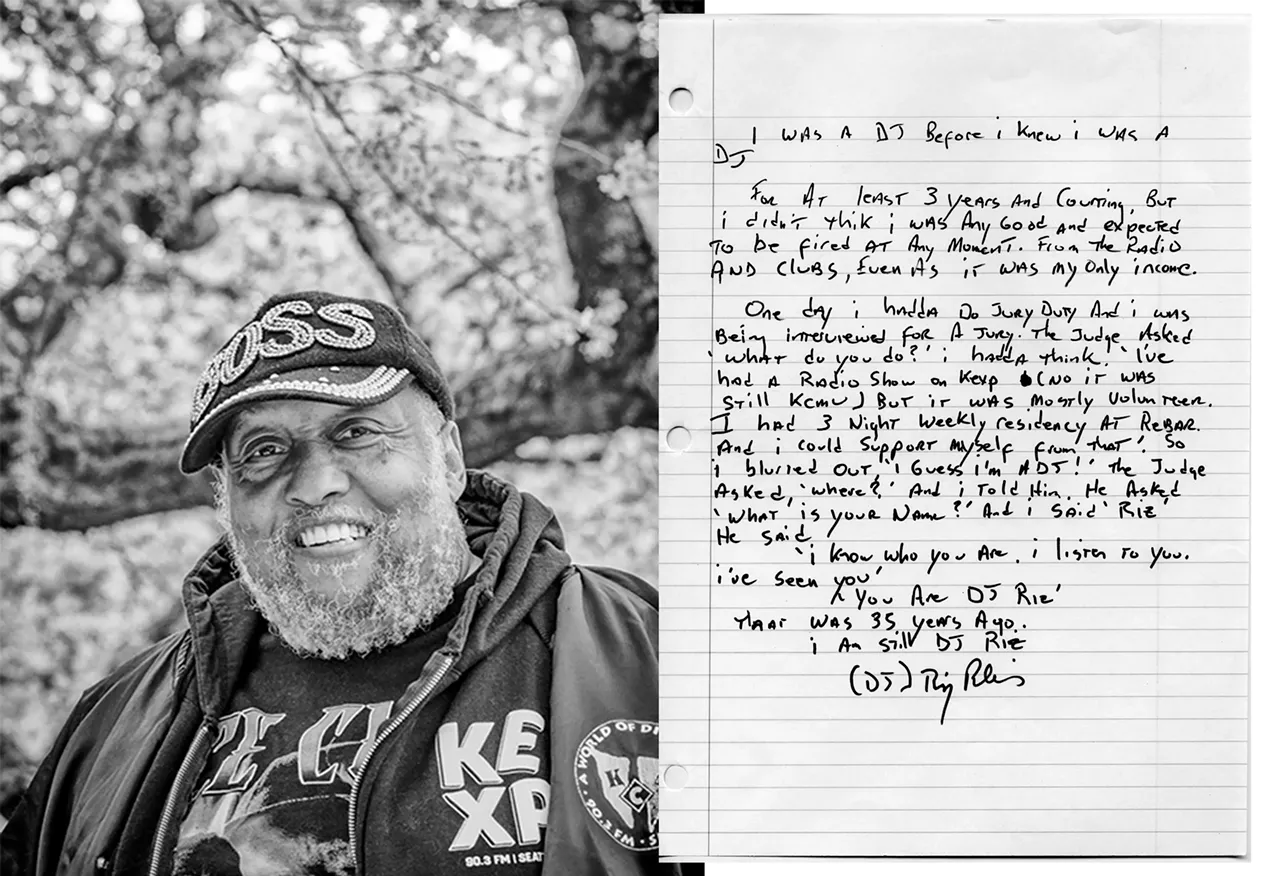 BOSS
KE
XP
90.3 FM | SEAT
A WORLD OF DI
K
C
A
90.3 FM • S
I WAS A DJ Before i Knew i WAS A
DJ
For AT least 3 years And Counting, But
i didn't thik i was Any Good and expected
To be fired AT Any Moment. From The Radio
AND Clubs, Even As it was my Only income.
One day i hadda Do Jury Duty And i was
Being interviewed for A Jury. The Judge Asked
'What do you do?' i hadda think. 'I've
had A Radio Show on Kexp (No it was
still Kcmu) But it was Mostly Volunteer.
I had 3 Night Weekly residency AT ReBAR.
And i could Support myself from that! So
i blurted Out, 'i Guess i'm A DJ!' The Judge
Asked, 'where?,' And i Told Him. He Asked
'What is your Name?' And i SAid 'Riz'
He Said
'i know who you Are. i listen to you.
i've seen you'
'you Are DJ Riz'
That was 35 years Ago.
i Am still DJ Riz
(DJ) Riz